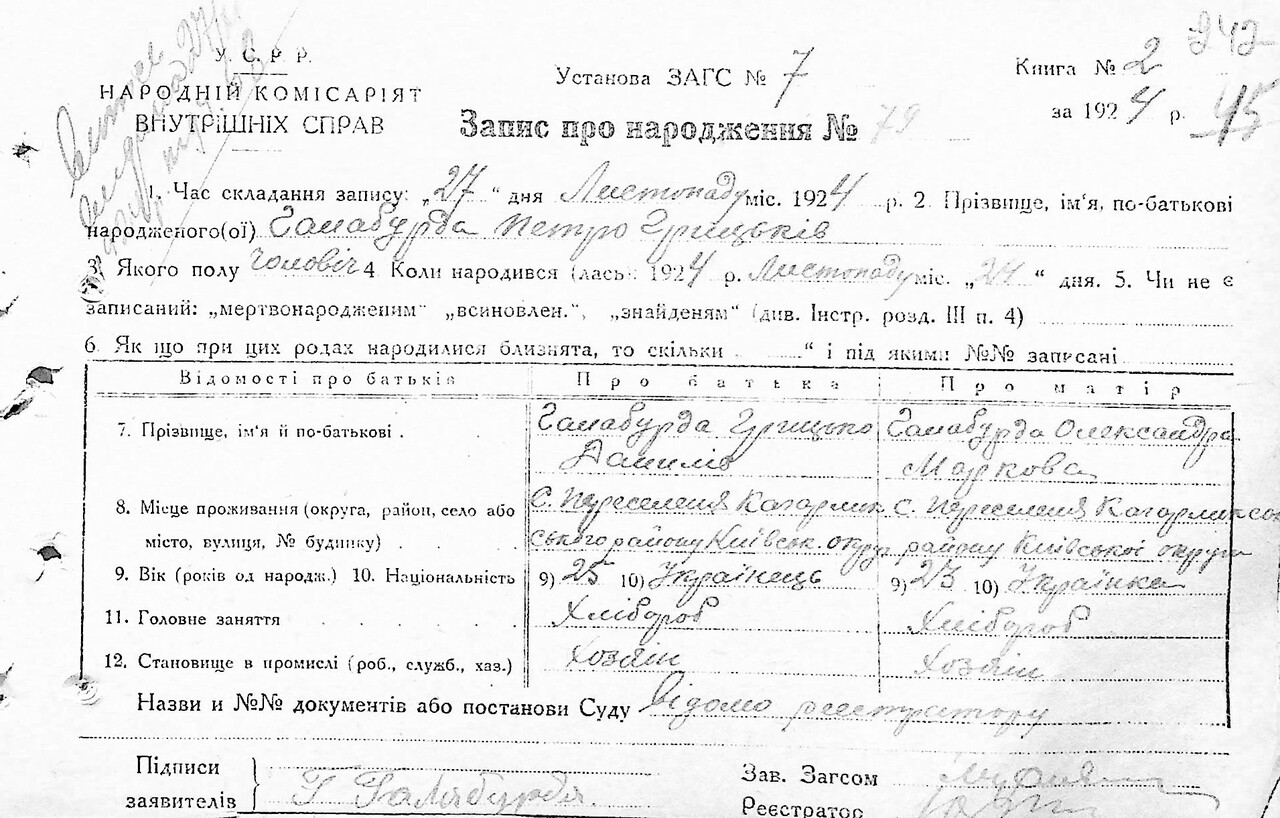 242
У. С. Р. Р.
НАРОДНІЙ КОМІСАРІЯТ
ВНУТРІШНІХ СПРАВ
Установа ЗАГС № 7
Книга № 2
за 1924 р. 45
Запис про народження № 79
1. Час складання запису: „27“ дня Листопаду міс. 1924 р. 2. Прізвище, ім‘я, по-батькові
народженого(ої) Галабурда Петро Грицьків
3. Якого полу чоловіч 4. Коли народився (лась) 1924 р. Листопаду міс. „24“ дня. 5. Чи не є
записаний: „мертвонародженим“ „всиновлен.“, „знайденям“ (див. Інстр. розд. III п. 4)
6. Як що при цих родах народилися близнята, то скільки “ і під якими №№ записані
Відомості про батьків Про батька Про матір
7. Прізвище, ім‘я й по-батькові . Галабурда Грицько Галабурда Олександра
Данилів Маркова
8. Місце проживання (округа, район, село або с. Переселення Кагарлик с. Переселення Кагарликсь
місто, вулиця, № будинку) . . ського району Київськ. округ району Київської округи
9. Вік (років од народж.) 10. Національність 9) 25 10) Українець 9) 23 10) Українка
11. Головне заняття . . . . . Хлібороб Хлібороб
12. Становище в промислі (роб., служб., хаз.) Хозяїн Хозяїн
Назви и №№ документів або постанови Суду Відомо реєстратору
Підписи
заявителів Г Галабурда.
Зав. Загсом
Реєстратор